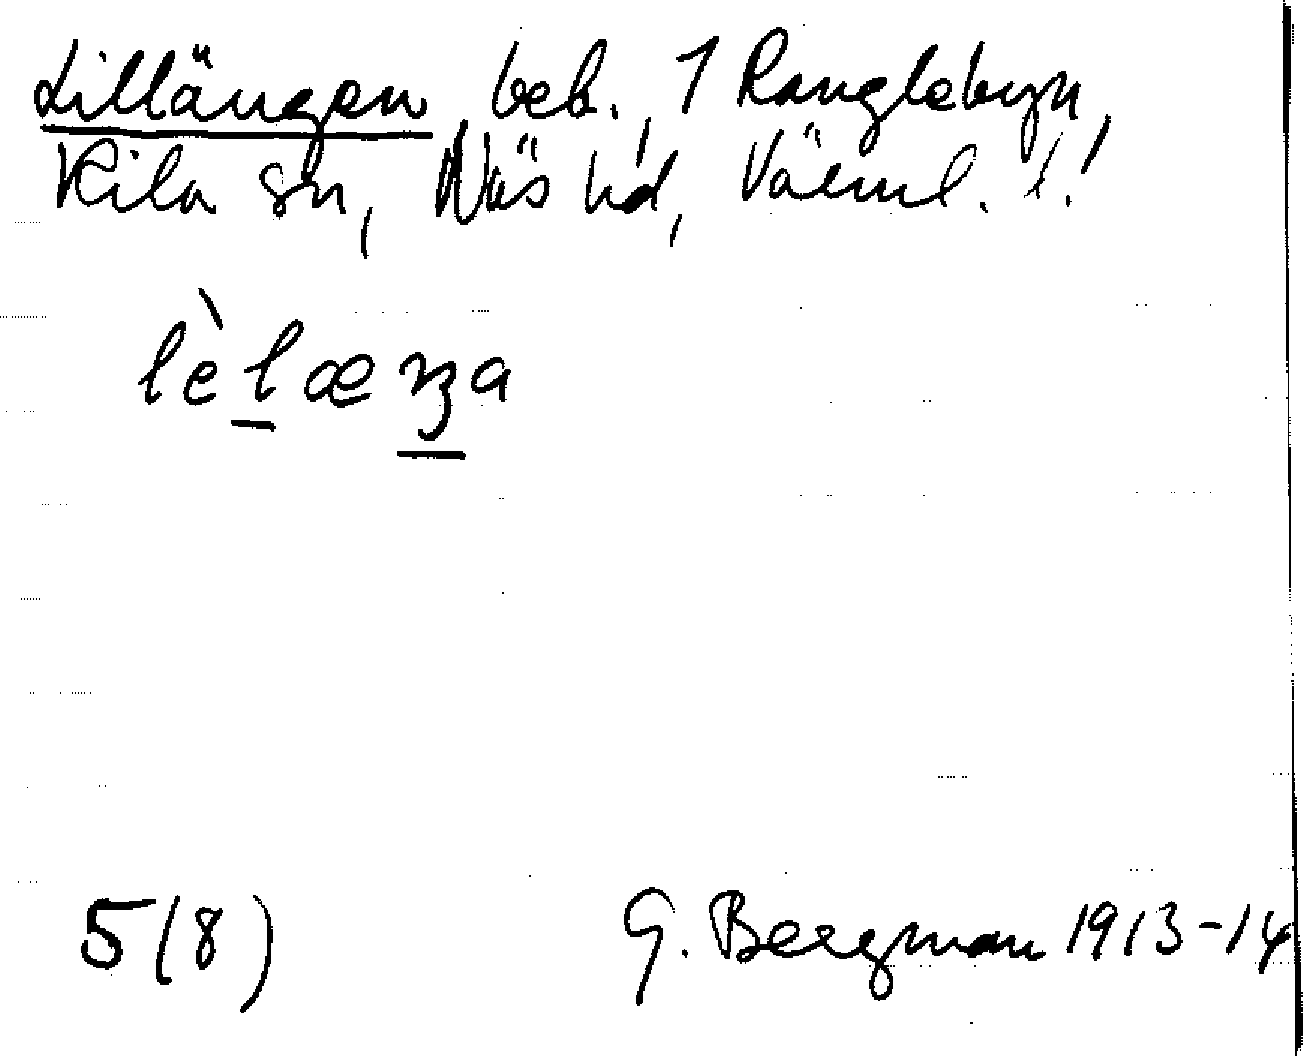 Lillängen, beb., 1 Ranglebyn,
Kila sn, Näs hd, Värml. l.!
lèlæŋa
5(8) G. Bergman 1913-14